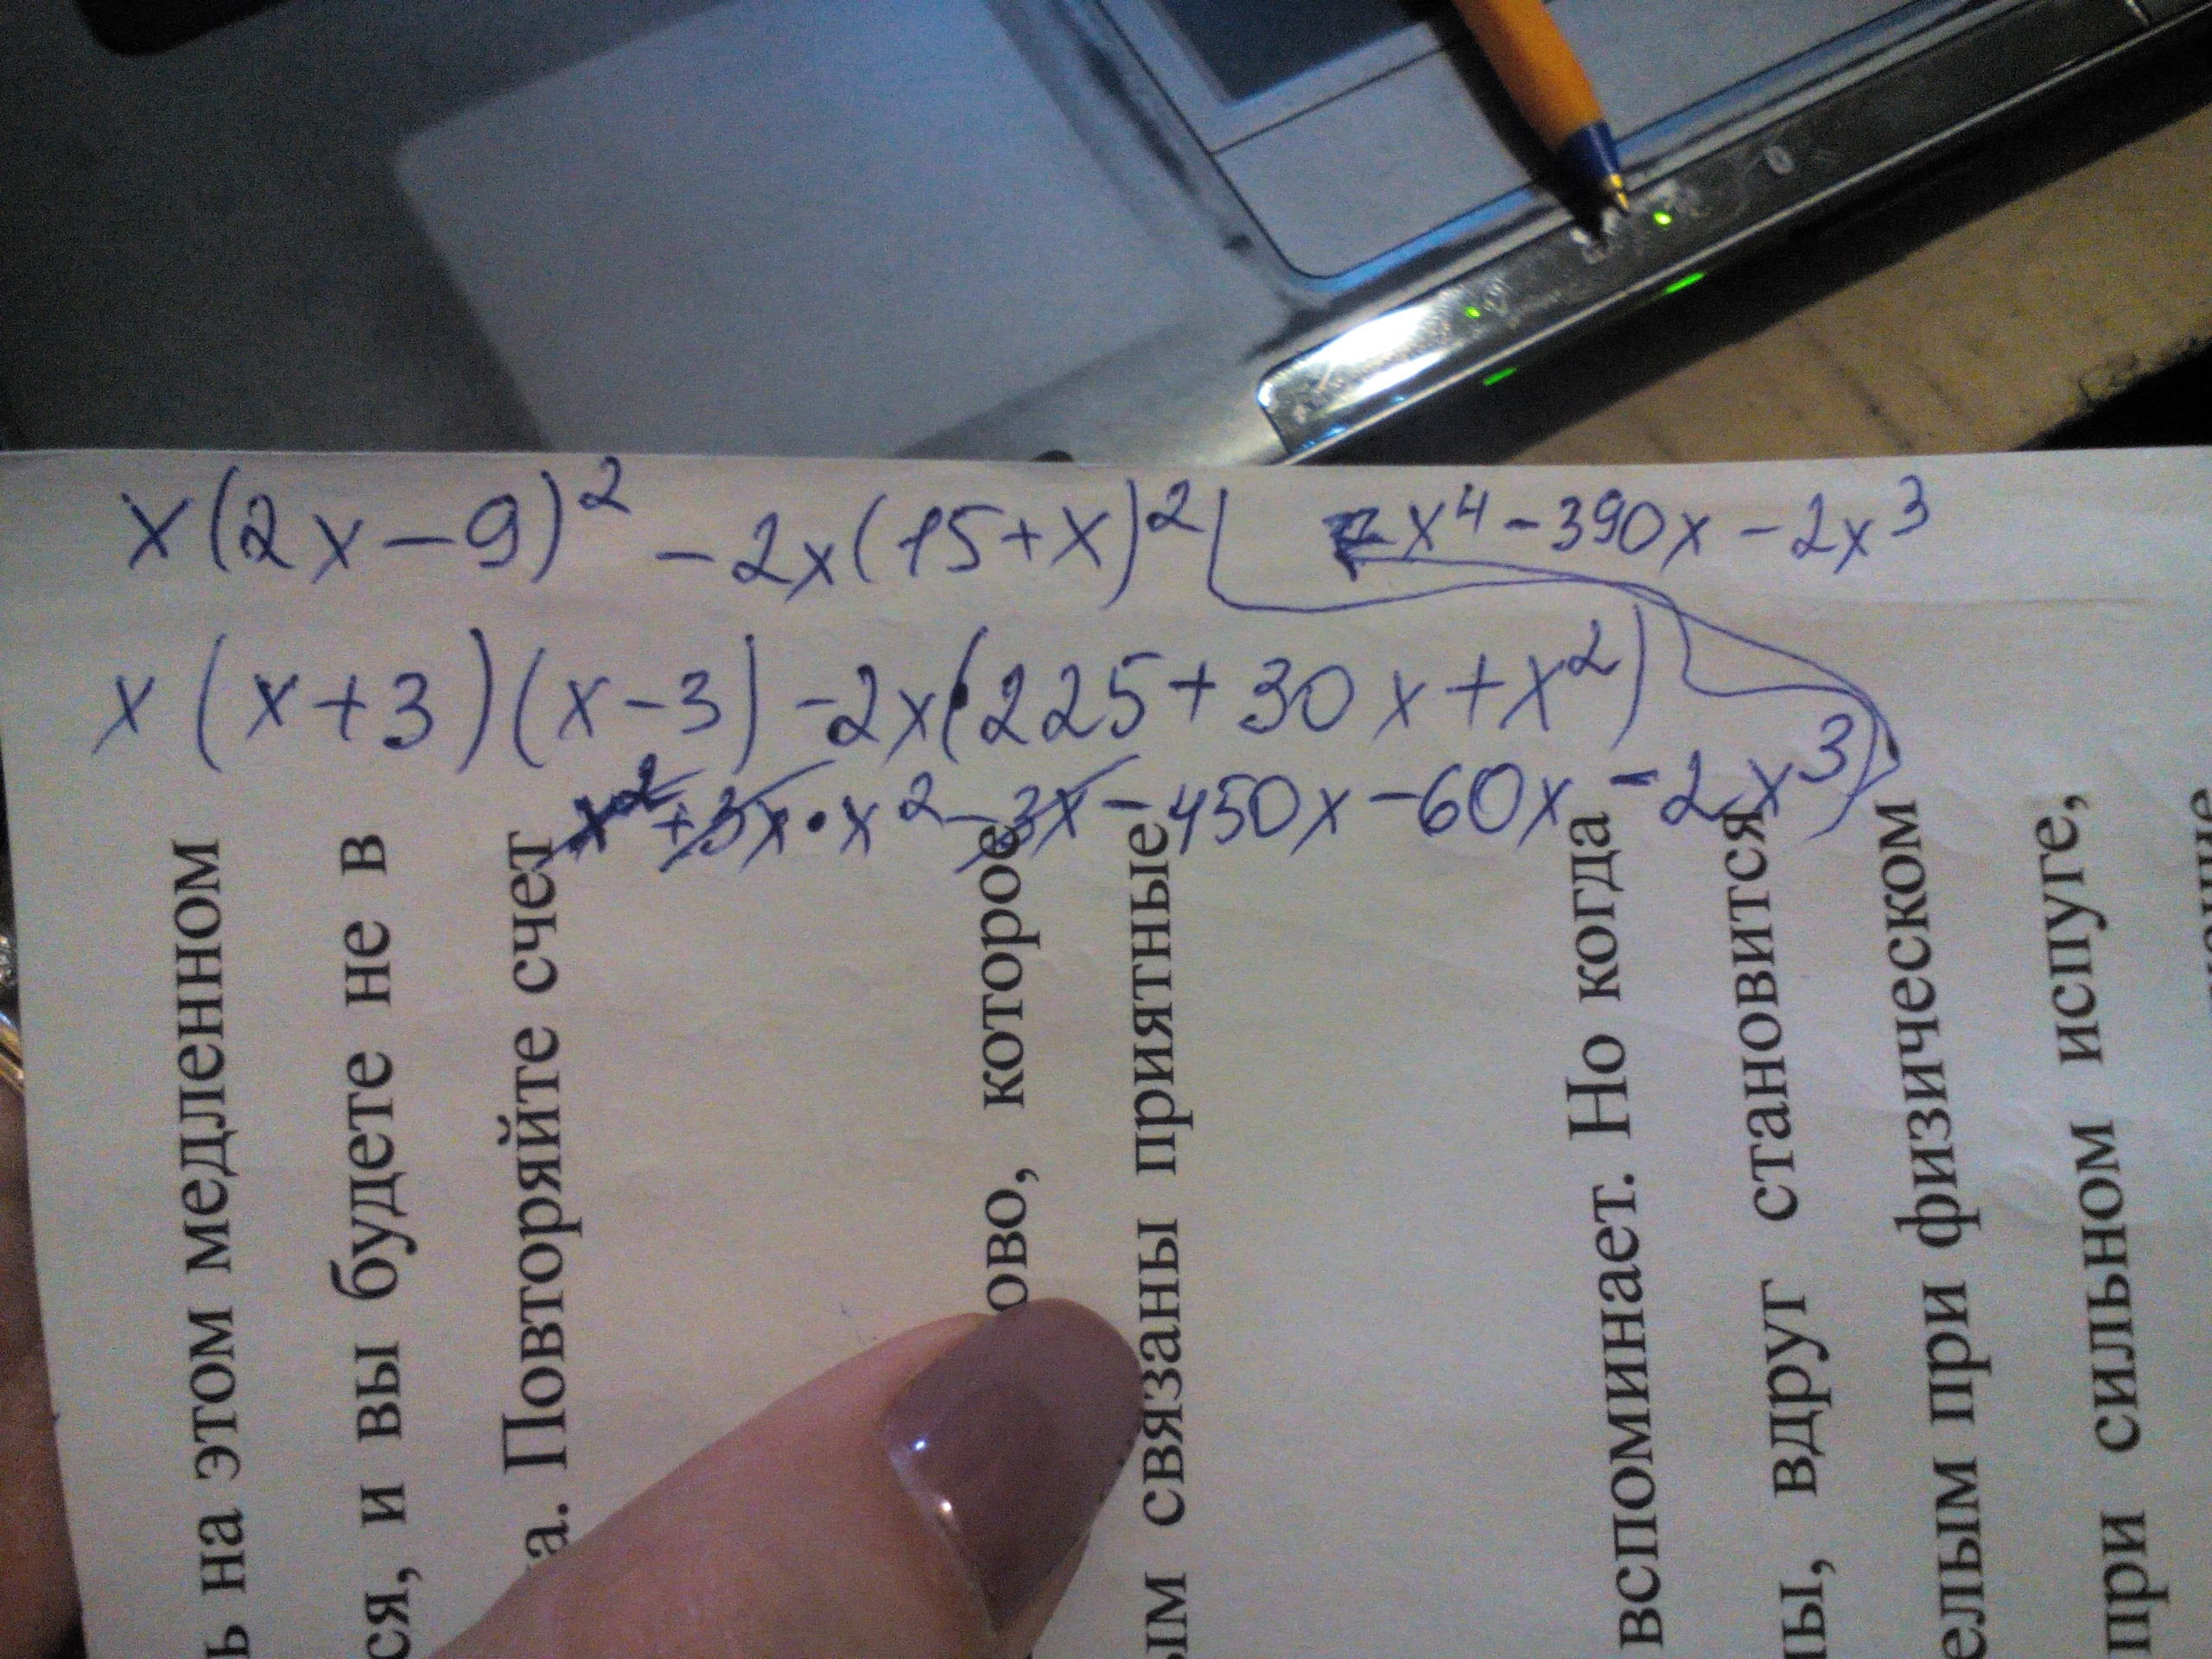 x(2x-9)² -2x(15+x)² x⁴-390x-2x³
x(x+3)(x-3)-2x(225+30x+x²)
x²+3x·x²-3x-450x-60x-2x³
ь на этом медленном
ся, и вы будете не в
а. Повторяйте счет
ово, которое
ым связаны приятные
вспоминает. Но когда
ы, вдруг становится
елым при физическом
при сильном испуге,